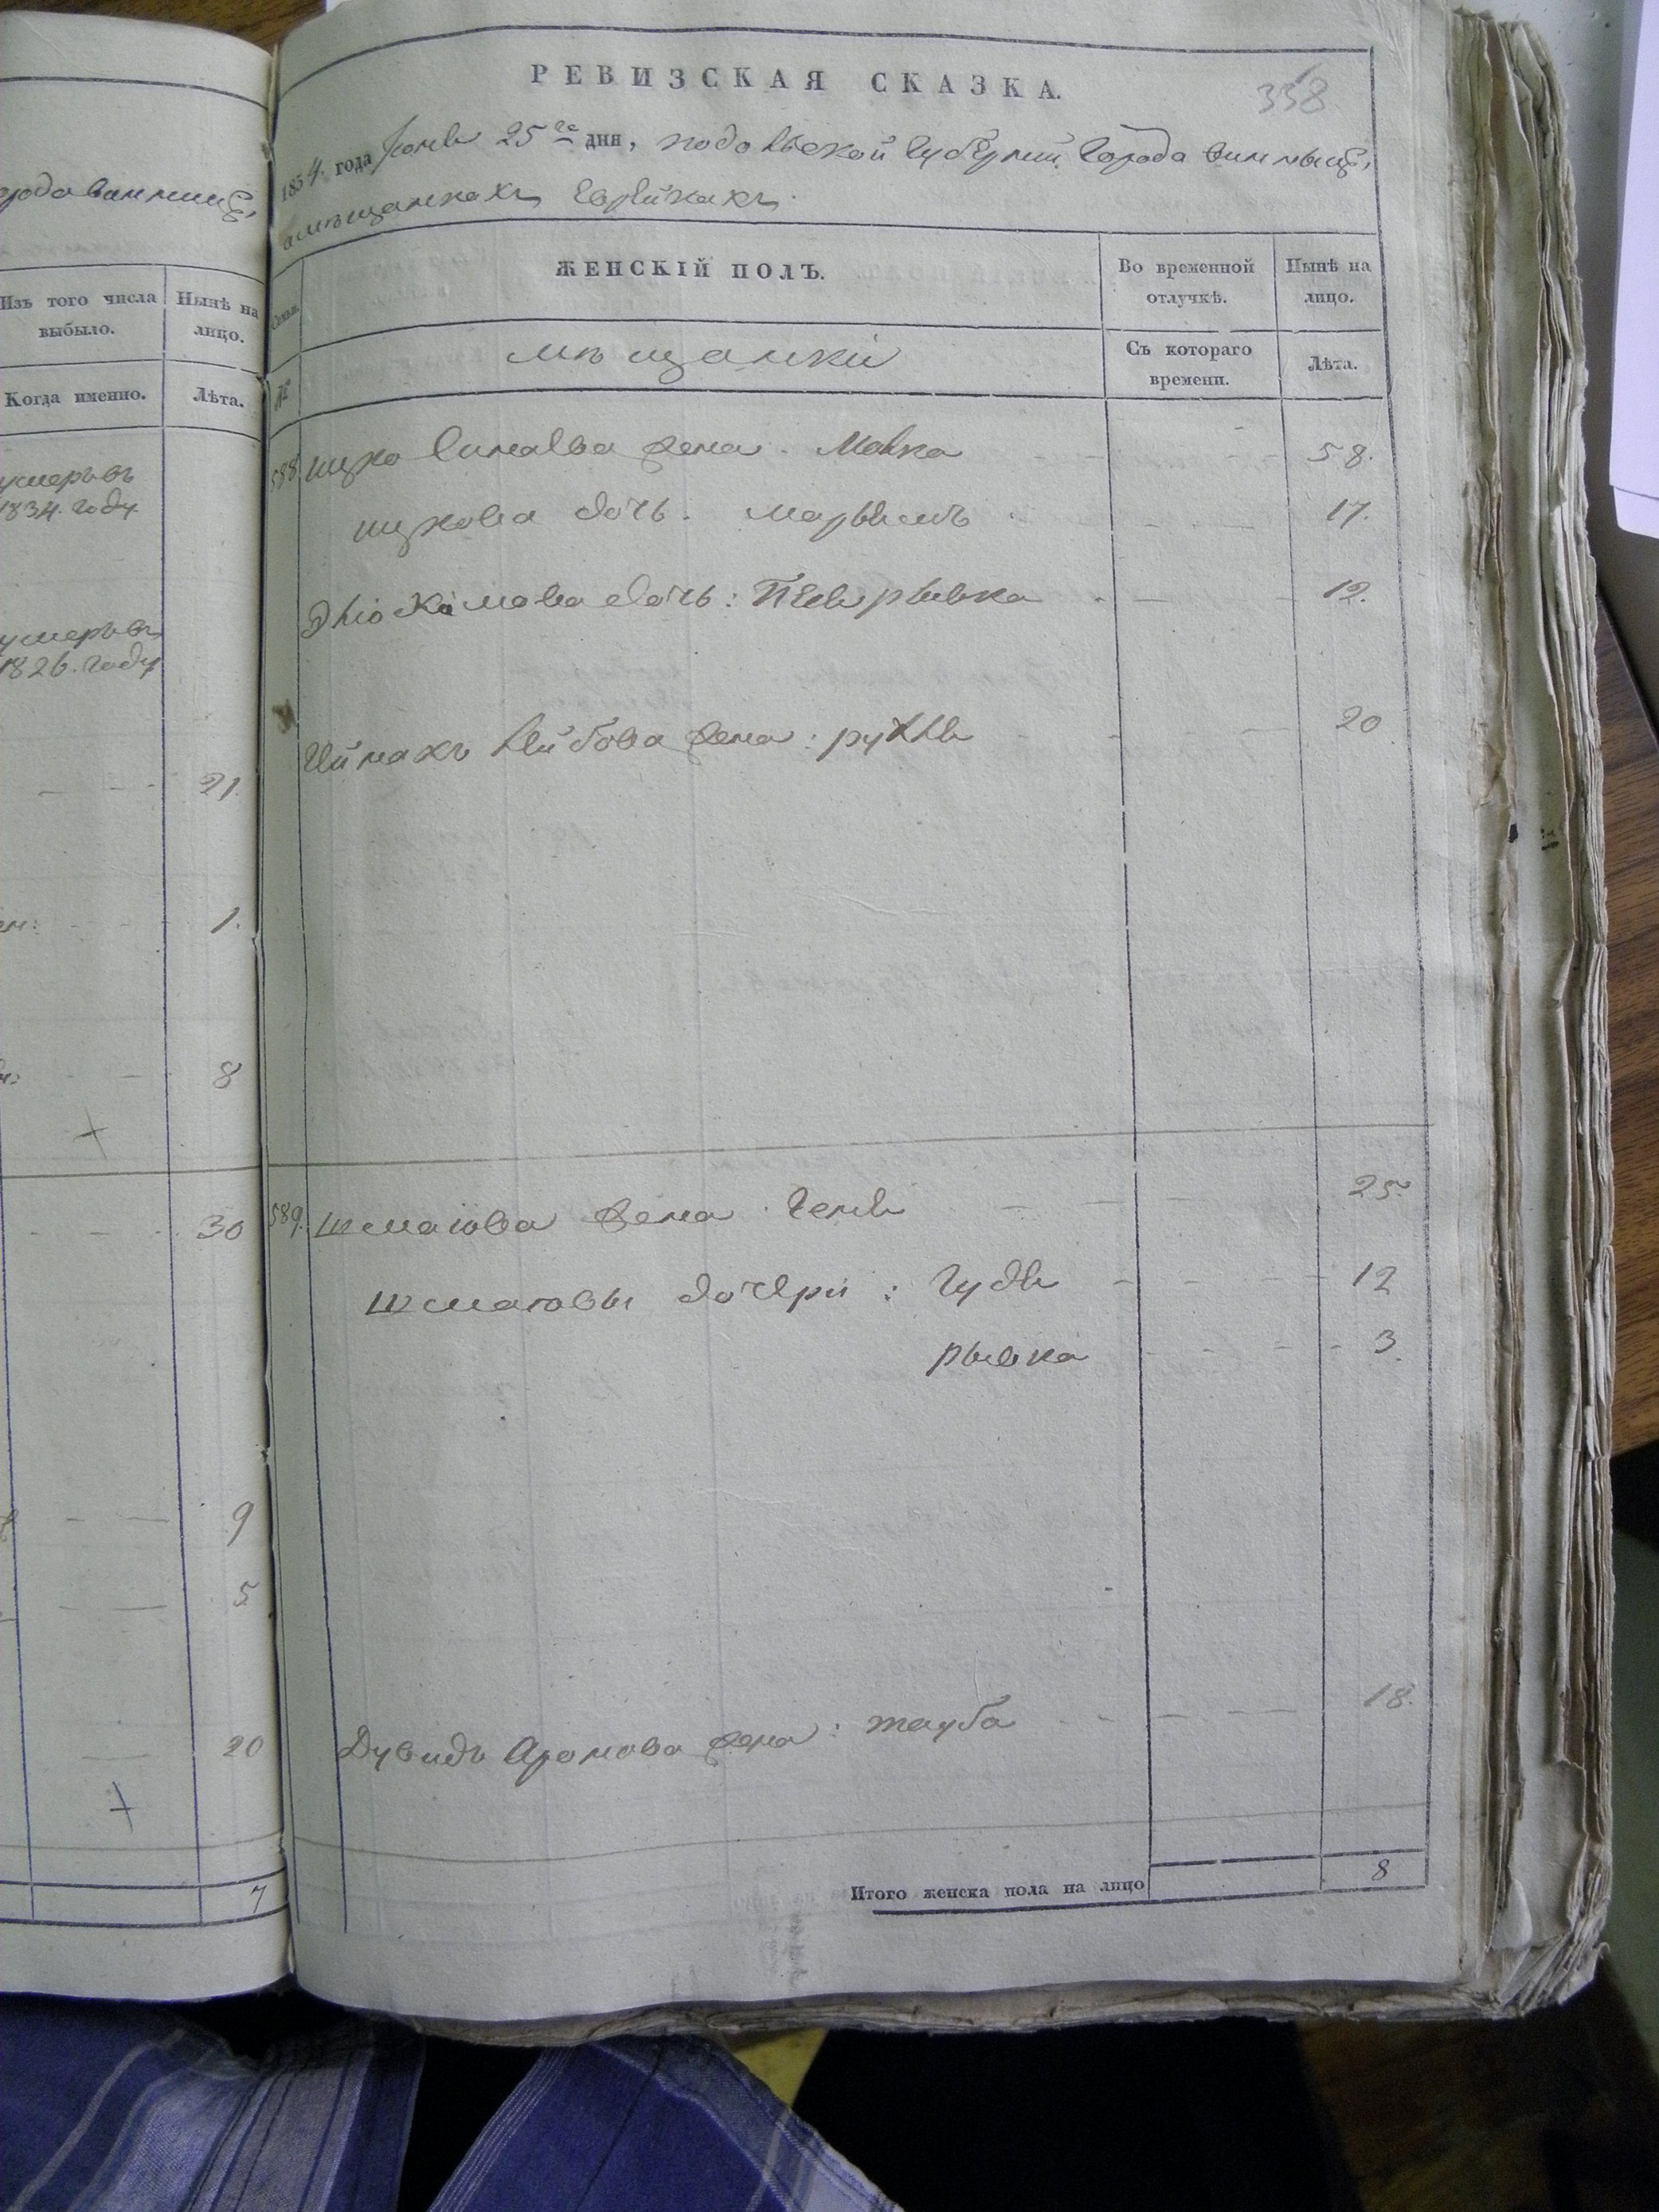 города винницы,
Изъ того числа выбыло.
Нынѣ на лицо.
Когда именно.
Лѣта.
умеръ въ
1834. году.
умеръ въ
1826. году
21.
1.
8
30
9
5
20
7
РЕВИЗСКАЯ СКАЗКА.
338
1834. года 25го дня, подольской губернии города винницы,
о мѣщанкахъ еврейкахъ.
Семьи.
ЖЕНСКІЙ ПОЛЪ.
Во временной отлучкѣ.
Нынѣ на лицо.
№
мѣщанки
Съ котораго времени.
Лѣта.
588. жена. Мовка 58.
дочь. марьямъ 17.
дочь: 12.
Лейбова жена: рухля 20
589. шмаюва жена. геня 25.
шмаювы дочери: гудя 12
рывка 3.
Дувидъ Аронова жена: тауба 18.
Итого женска пола на лицо 8